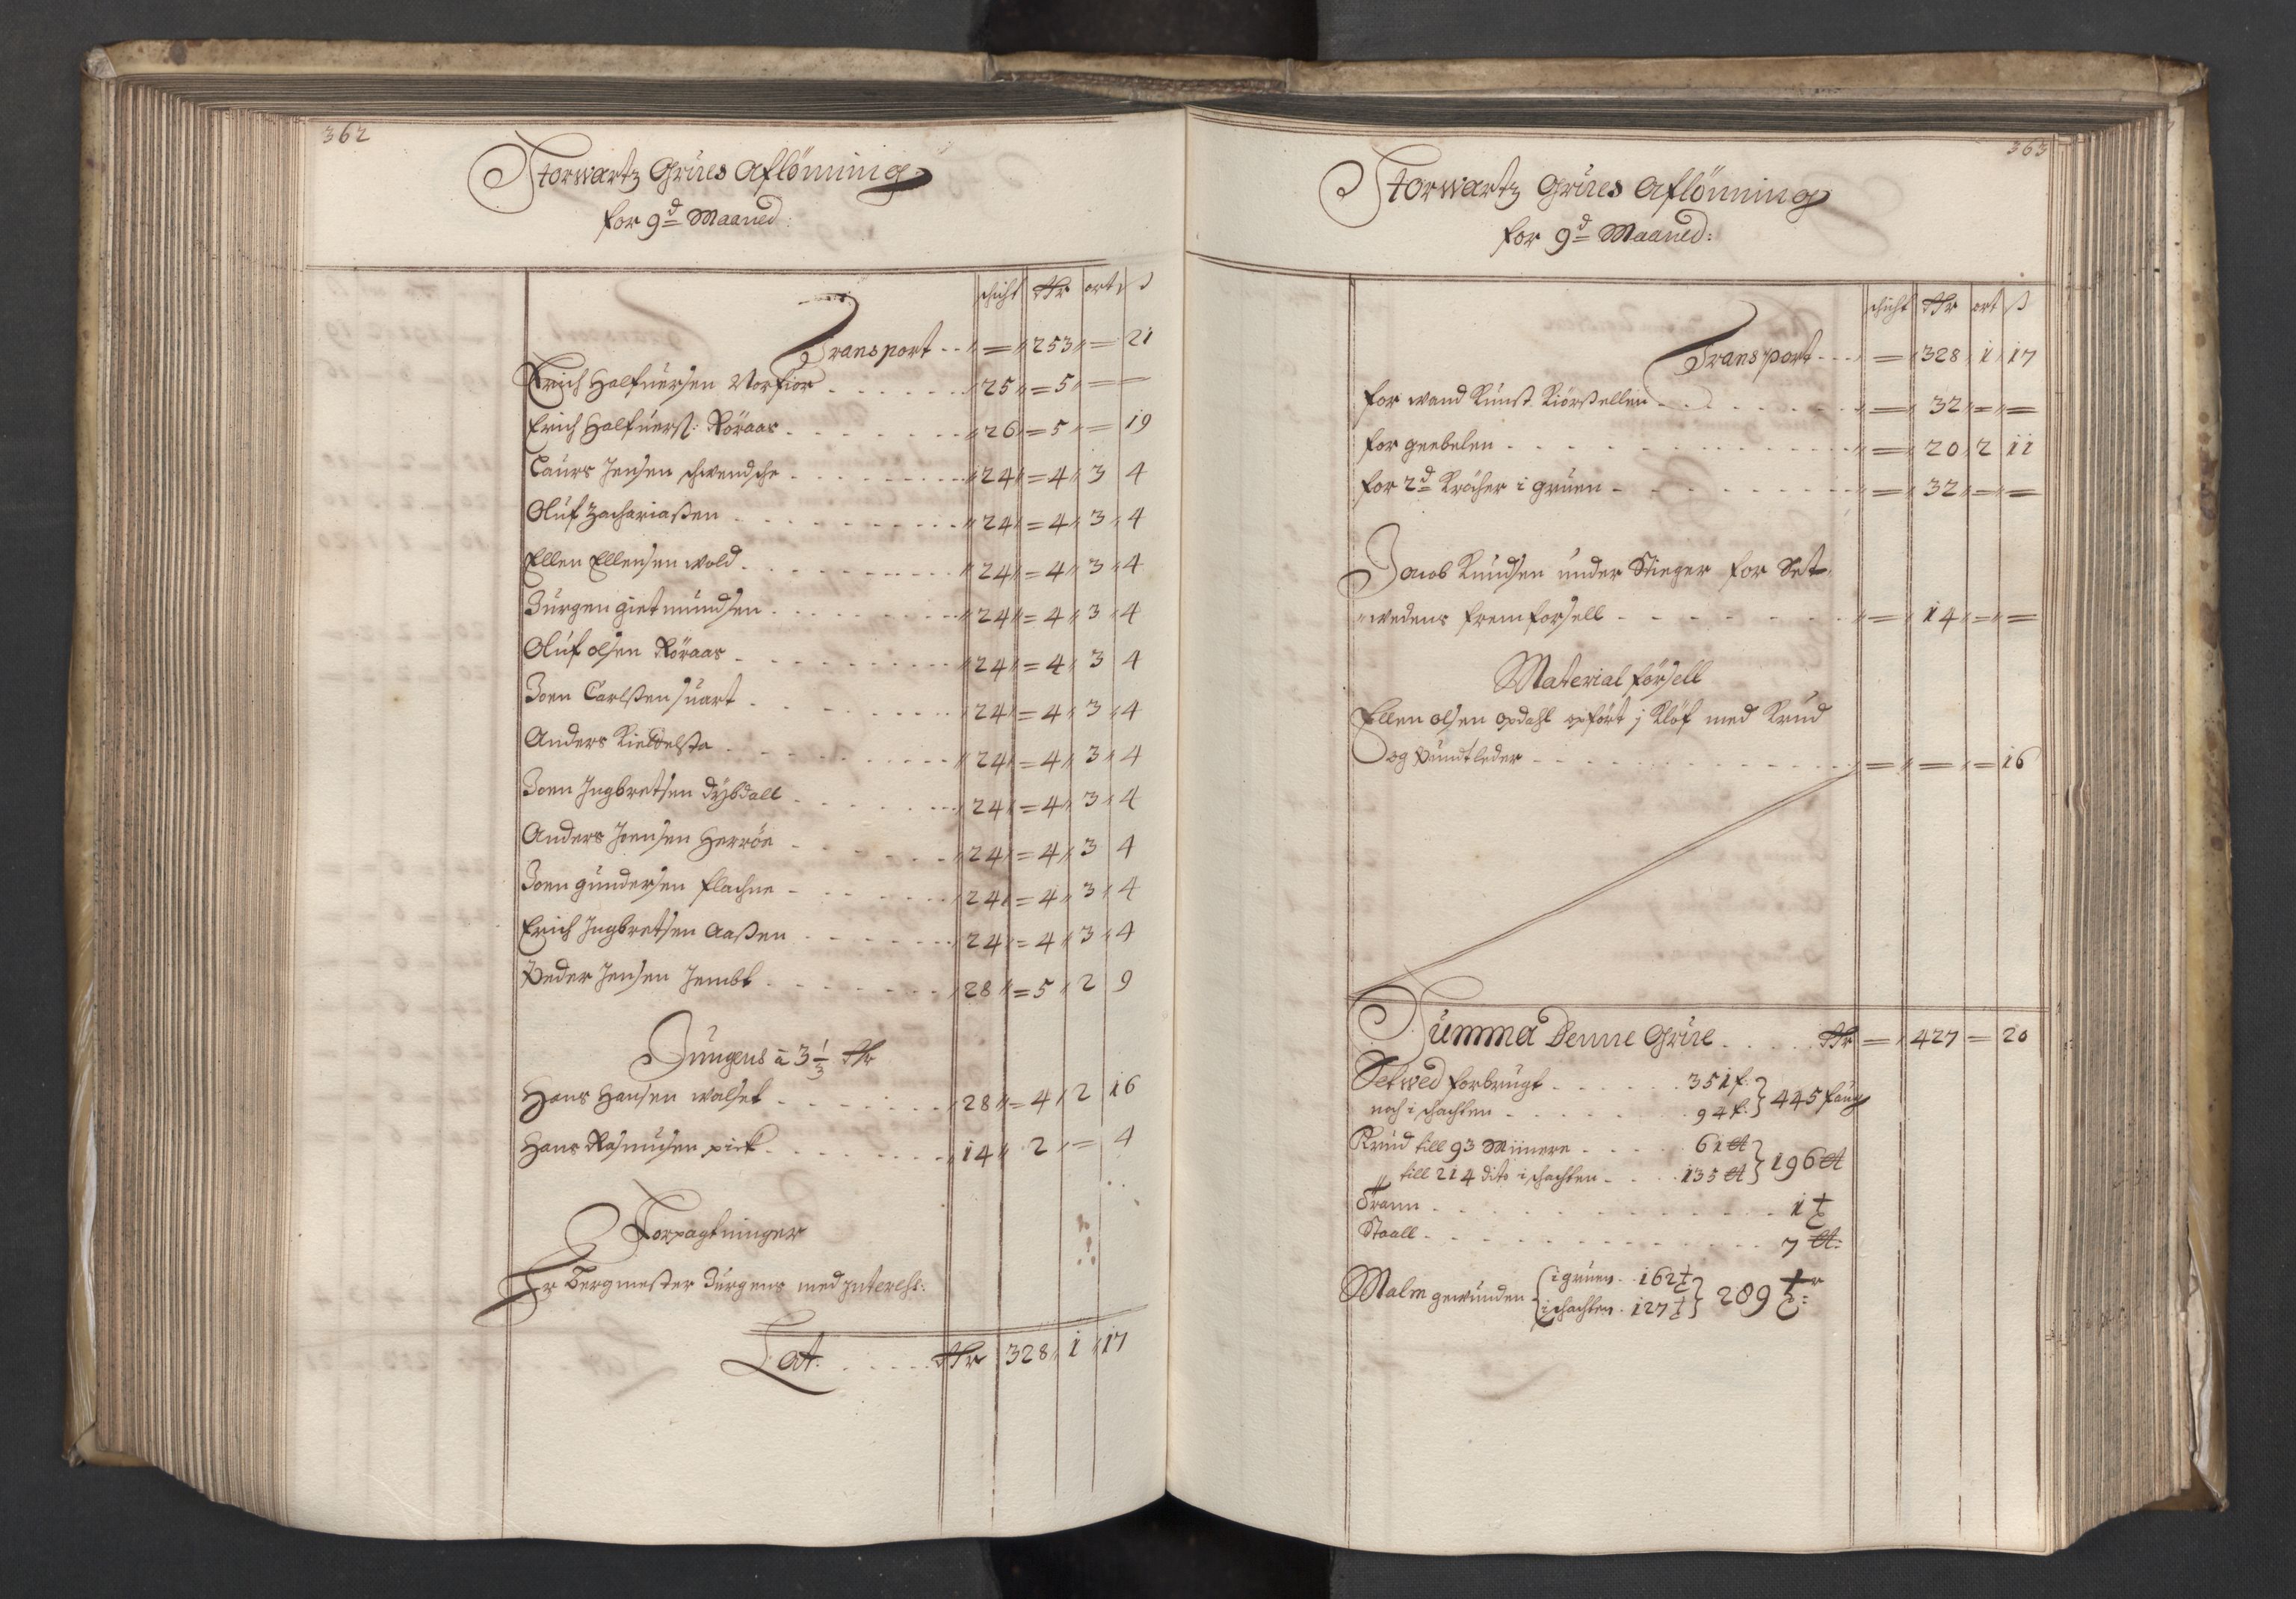 362
Storwartz Grües Aflönning
for 9d Maaned:
schicht Rdr ort ß
Transport - - " = " 253 " = 21
Erich Halfuersen Vorfior - - - " 25 " = 5 " = =
Erich Halfuerß: Röraas - - - " 26 " = 5 " = 19
Laurs Jensen schwendsche - - - " 24 " = 4 " 3 4
Oluf Zachariaßen - - - " 24 " = 4 " 3 " 4
Ellen Ellensen wold - - - " 24 " = 4 " 3 " 4
Jürgen gietmundsen - - - " 24 " = 4 " 3 " 4
Oluf olsen Röraas - - - " 24 " = 4 " 3 4
Joen Carlßen suart - - - " 24 " = 4 " 3 " 4
Anders Kiettelßa - - - " 24 " = 4 " 3 " 4
Joen Ingbretsen dÿbdall - - - " 24 " = 4 " 3 " 4
Anders Joensen Herröe - - - " 24 " = 4 " 3 4
Joen gundersen flachne - - - " 24 " = 4 " 3 " 4
Erich Ingbretsen Aaßen - - - " 24 " = 4 " 3 " 4
Peder Jensen Jembt - - - " 28 " = 5 " 2 9
Jungens a 3 1/3 Rdr
Hans Hansen walset - - - " 28 " = 4 " 2 16
Hans Rasmusen pick - - - " 14 " 2 " = 4
Forpagtninger
Hr Bergmester Jürgens med Interehs:
Lat: - - - Rdr 328 " 1 " 17
363
Storwartz Grües Aflönning
for 9d Maaned:
schicht Rdr ort ß
Transport - - - " = " 328 " 1 " 17
for wand Kunst Kiörßellen - - - " = " 32 " = " =
for geebelen - - - " = " 20 " 2 11
for 2d Kröher i gruen - - - " = " 32 " = " =
Jacob Knudsen under Stieger for Set-
" wedens fremforsell - - - " = " 14 " = " =
Material försell
Ellen olsen opdahl opfört j Klöf med Krud
og Pundtleder - - - " = " = " = 16
Summa Denne Grue - - - Rdr = " 427 = 20
Setwed forbrugt - - - 351 f: } 445 faug
noch i schachten - - - 94 f: }
Krud till 93 Miinere - - - 61 ℔ } 196 ℔
" till 214 dito i schachten - - - 135 ℔ }
Trann - - - 1 t
Staall - - - 7 ℔:
Malm gewunden { i gruen - 162 t } 289 tr:
{ i schachten - 127 t }